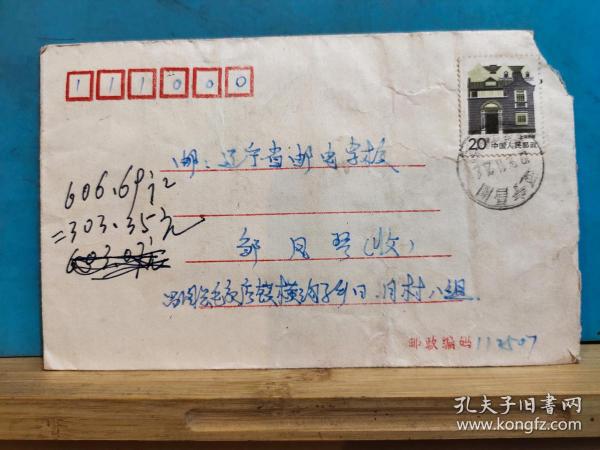 111000
20分 中国人民邮政
邮：辽宁省邮电学校
606.69
=303.35元
邹凤琴(收)
昌图县毛家店镇横沟子乡日月村八组
邮政编码 112507
孔夫子旧书网
www.kongfz.com